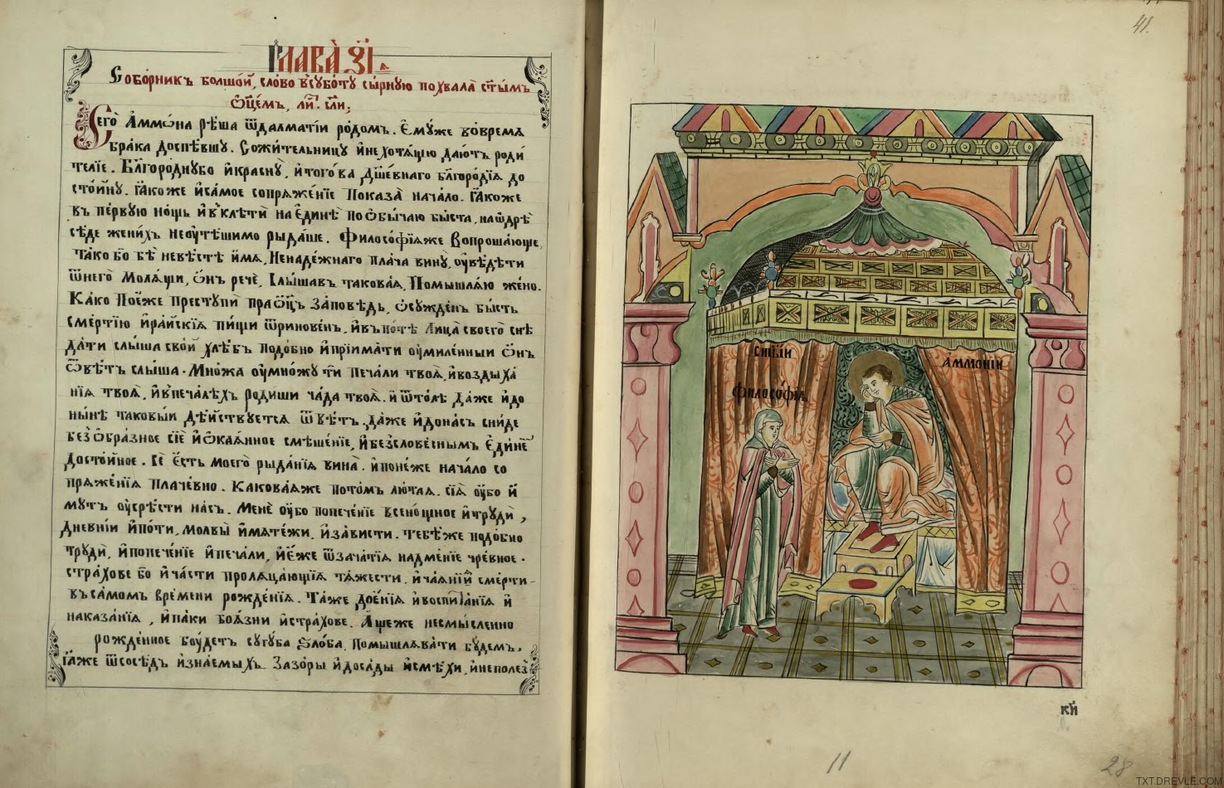 Глава з҃і.
Соборникъ болшой, слово в̾субо́ту сы́рную похвала̀ ст҃ы́мъ
ѻ҆це́мъ, ли. сл҃и;
Сего̀ Аммѡ́на рѣша ѿдалматі́и ро́домъ. Є҆му́же во́время
бра́ка доспѣ́вшу. Сожи́тельницу и҆не хотѧ́щю даю́тъ роди́
телїе. Бл҃горо́днубо и҆красну̀. и҆того́ ва дш҃е́внаго бл҃горо́дїѧ до
сто́йну. Ꙗ҆коже и҆са́мое сопрѧже́нїе показа̀ нача́ло. Ꙗ҆коже
въ пе́рвую но́щь и҆в̾клѣ́ти наединѣ̀ поѻбы́чаю бы́ста, наѻдрѣ̀
сѣ́де жени́хъ неоу҆тѣ́шимо рыда́ше. Філосо́фїѧже вопроша́юще,
та́ко бо бѣ̀ невѣ́стѣ и҆мѧ. Ненаде́жнаго пла́ча вину̀, оу҆вѣ́дѣти
ѿнего̀ молѧ́щи, ѻ҆нъ речѐ, Слы́шавъ такова́ѧ, Помышлѧ́ю же́но.
Ка́ко поне́же преступѝ прао҆ц҃ъ за́повѣдь, ѡ҆сужде́нъ бы́сть
сме́ртїю и҆ра́йскїѧ пи́щи ѿринове́нъ. и҆в̾по́тѣ лица̀ своегѡ̀ снѣ́
дати слы́ша сво́й хлѣ́бъ подо́бно и҆прїима́ти оу҆миле́нный ѻ҆нъ
ѿвѣ́тъ слы́ша. Мно́жа оу҆мно́жу ти печа́ли твоѧ̀, и҆воздыха́
нїѧ твоѧ̀, и҆в̾печа́лехъ роди́ши ча́да твоѧ̀. и҆ ѿто́лѣ да́же и҆до
ны́нѣ таковы́й дѣ́йствуетсѧ ѿвѣ́тъ. да́же и҆дона́съ сни́де
безѻбра́зное сїѐ и҆ѻка́ѧнное смѣше́нїе, и҆безслове́снымъ є҆ди́нѣ
досто́йное. Се є҆́сть моего̀ рыда́нїѧ вина̀. и҆поне́же нача́ло со
прѧже́нїѧ плаче́вно. Какова́ѧже пото́мъ лю́таѧ. сїѧ̀ оу҆бо и҆
му́тъ оу҆срѣ́сти на́съ. Менѐ оу҆бо попече́нїе всено́щное и҆тру́ди,
дне́внїи и҆по́ти, молвы̀ и҆мѧте́жи, и҆за́висти. Тебѣ́же подо́бно
тру́ди, и҆попече́нїе и҆печа́ли, и҆є́же ѿзача́тїѧ надме́нїе чре́вное.
стра́хове бо и҆ча́сти пролѧца́ющїѧ тѧ́жести. и҆ча́ѧнїй сме́рти
въ са́момъ вре́мени рожде́нїѧ. Та́же дое́нїѧ и҆воспита́нїѧ и҆
наказа́нїѧ, и҆па́ки боѧ́зни и҆стра́хове. А҆щеже несмы́сленно
рожде́нное боу́детъ сугу́ба ѕло́ба. помышлѧва́ти бу́демъ.
Ꙗ҆же ѿсосѣ́дъ и҆зна́емыхъ. Зазо́ры и҆доса́ды и҆смѣ́хи, и҆неполез̾
41.
Аммоній
філосо́фїѧ
к҃и
11
28
TXT.DREVLE.COM